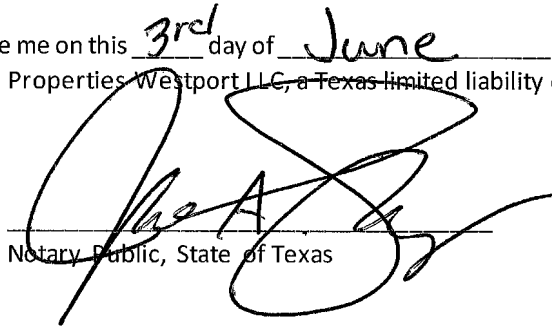 e me on this 3rd day of June
Properties Westport LLC, a Texas limited liability
A
Notary Public, State of Texas